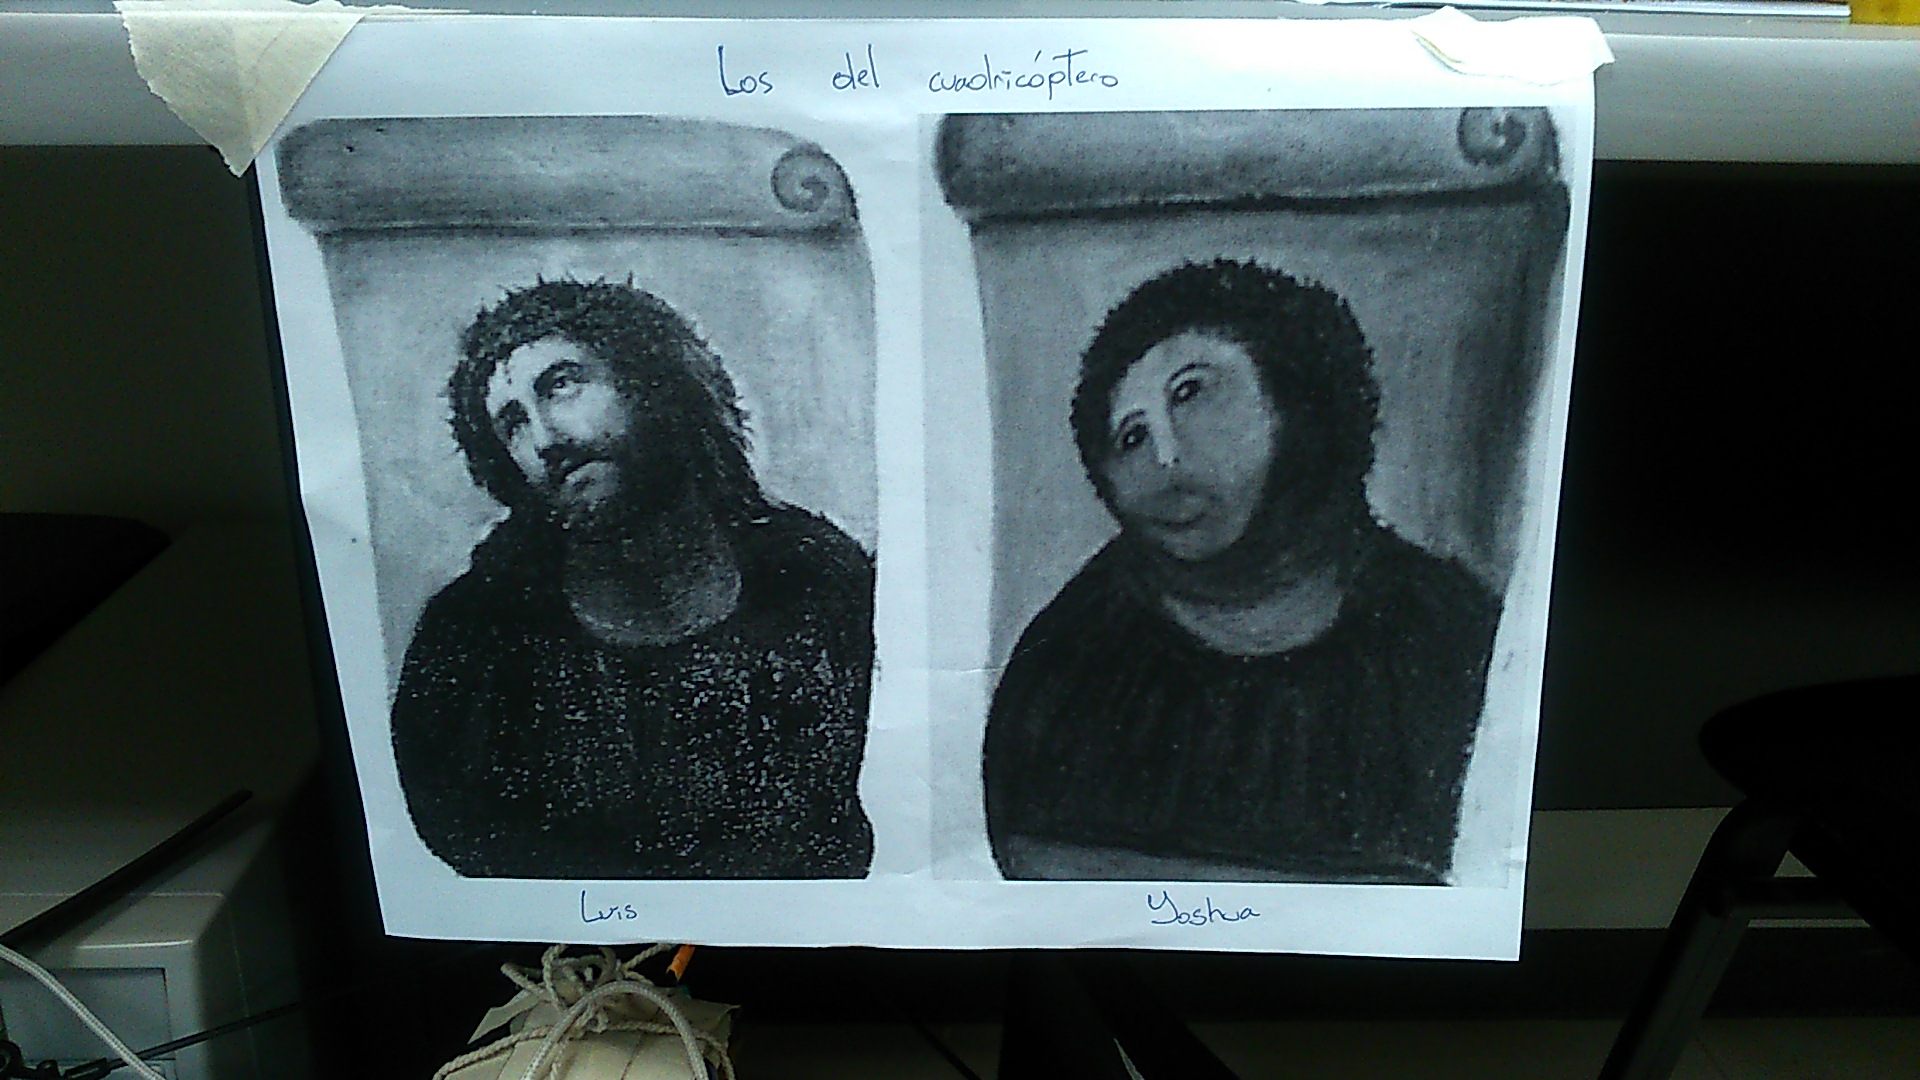 Los del cuadricóptero
Luis
Yoshua